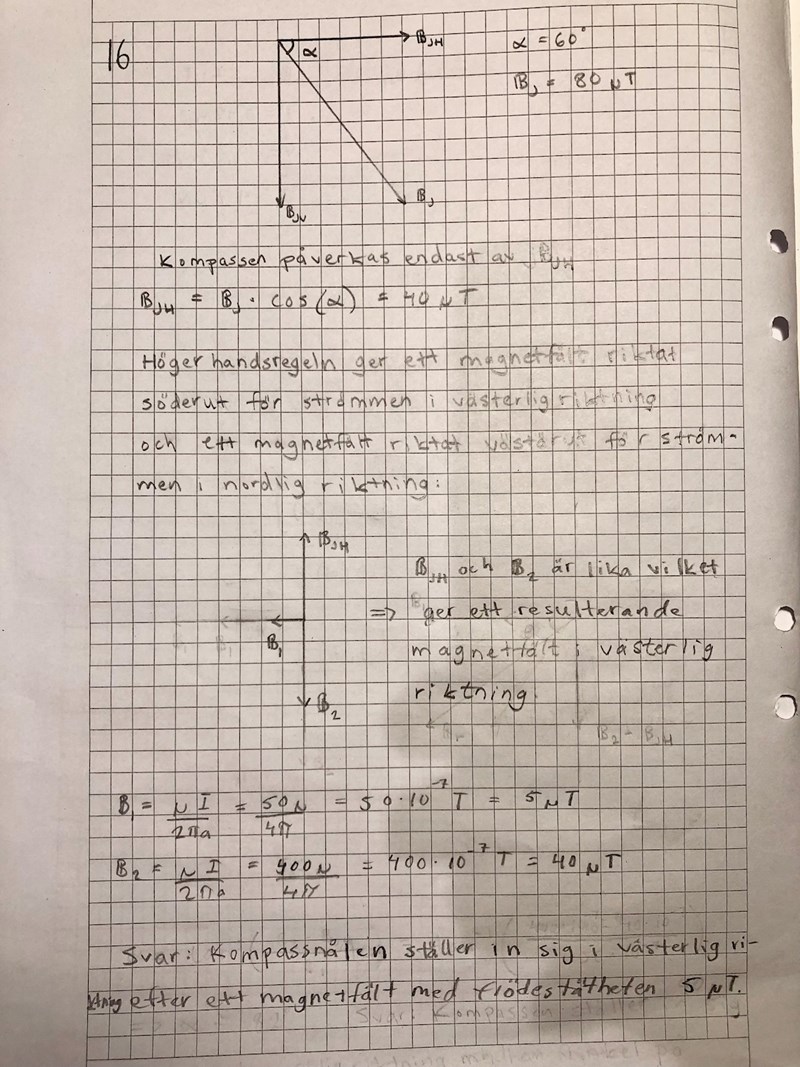 16
B_JH
α
α = 60°
B_J = 80 μT
B_JV
B_J
Kompassen påverkas endast av B_JH
B_JH = B_J · cos(α) = 40 μT
Högerhandsregeln ger ett magnetfält riktat
söderut för strömmen i västerlig riktning
och ett magnetfält riktat västerut för ström-
men i nordlig riktning:
B_JH
B_1
B_2
B_JH och B_2 är lika vilket
=> ger ett resulterande
magnetfält i västerlig
riktning.
B_2 - B_JH
B_1 = μI/2πa = 50μ/4π = 50·10^-7 T = 5 μT
B_2 = μI/2πb = 400μ/4π = 400·10^-7 T = 40 μT
Svar: Kompassnålen ställer in sig i västerlig ri-
ktning efter ett magnetfält med flödestätheten 5 μT.
Svar: Kompass